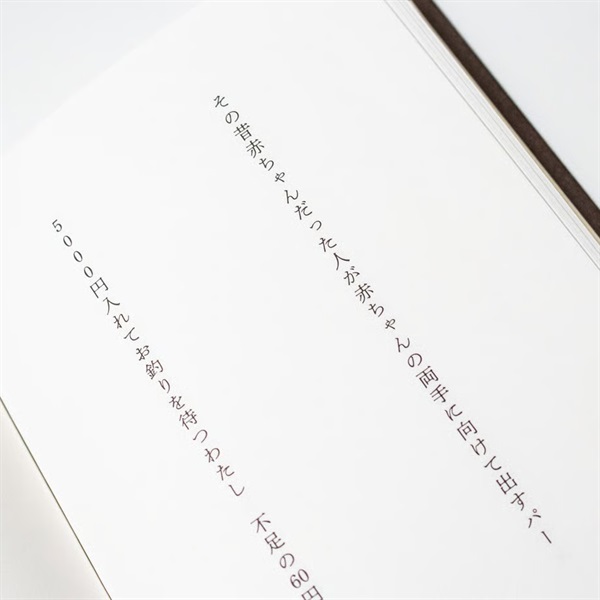 その昔赤ちゃんだった人が赤ちゃんの両手に向けて出すパー
5000円入れてお釣りを待つわたし　不足の60円